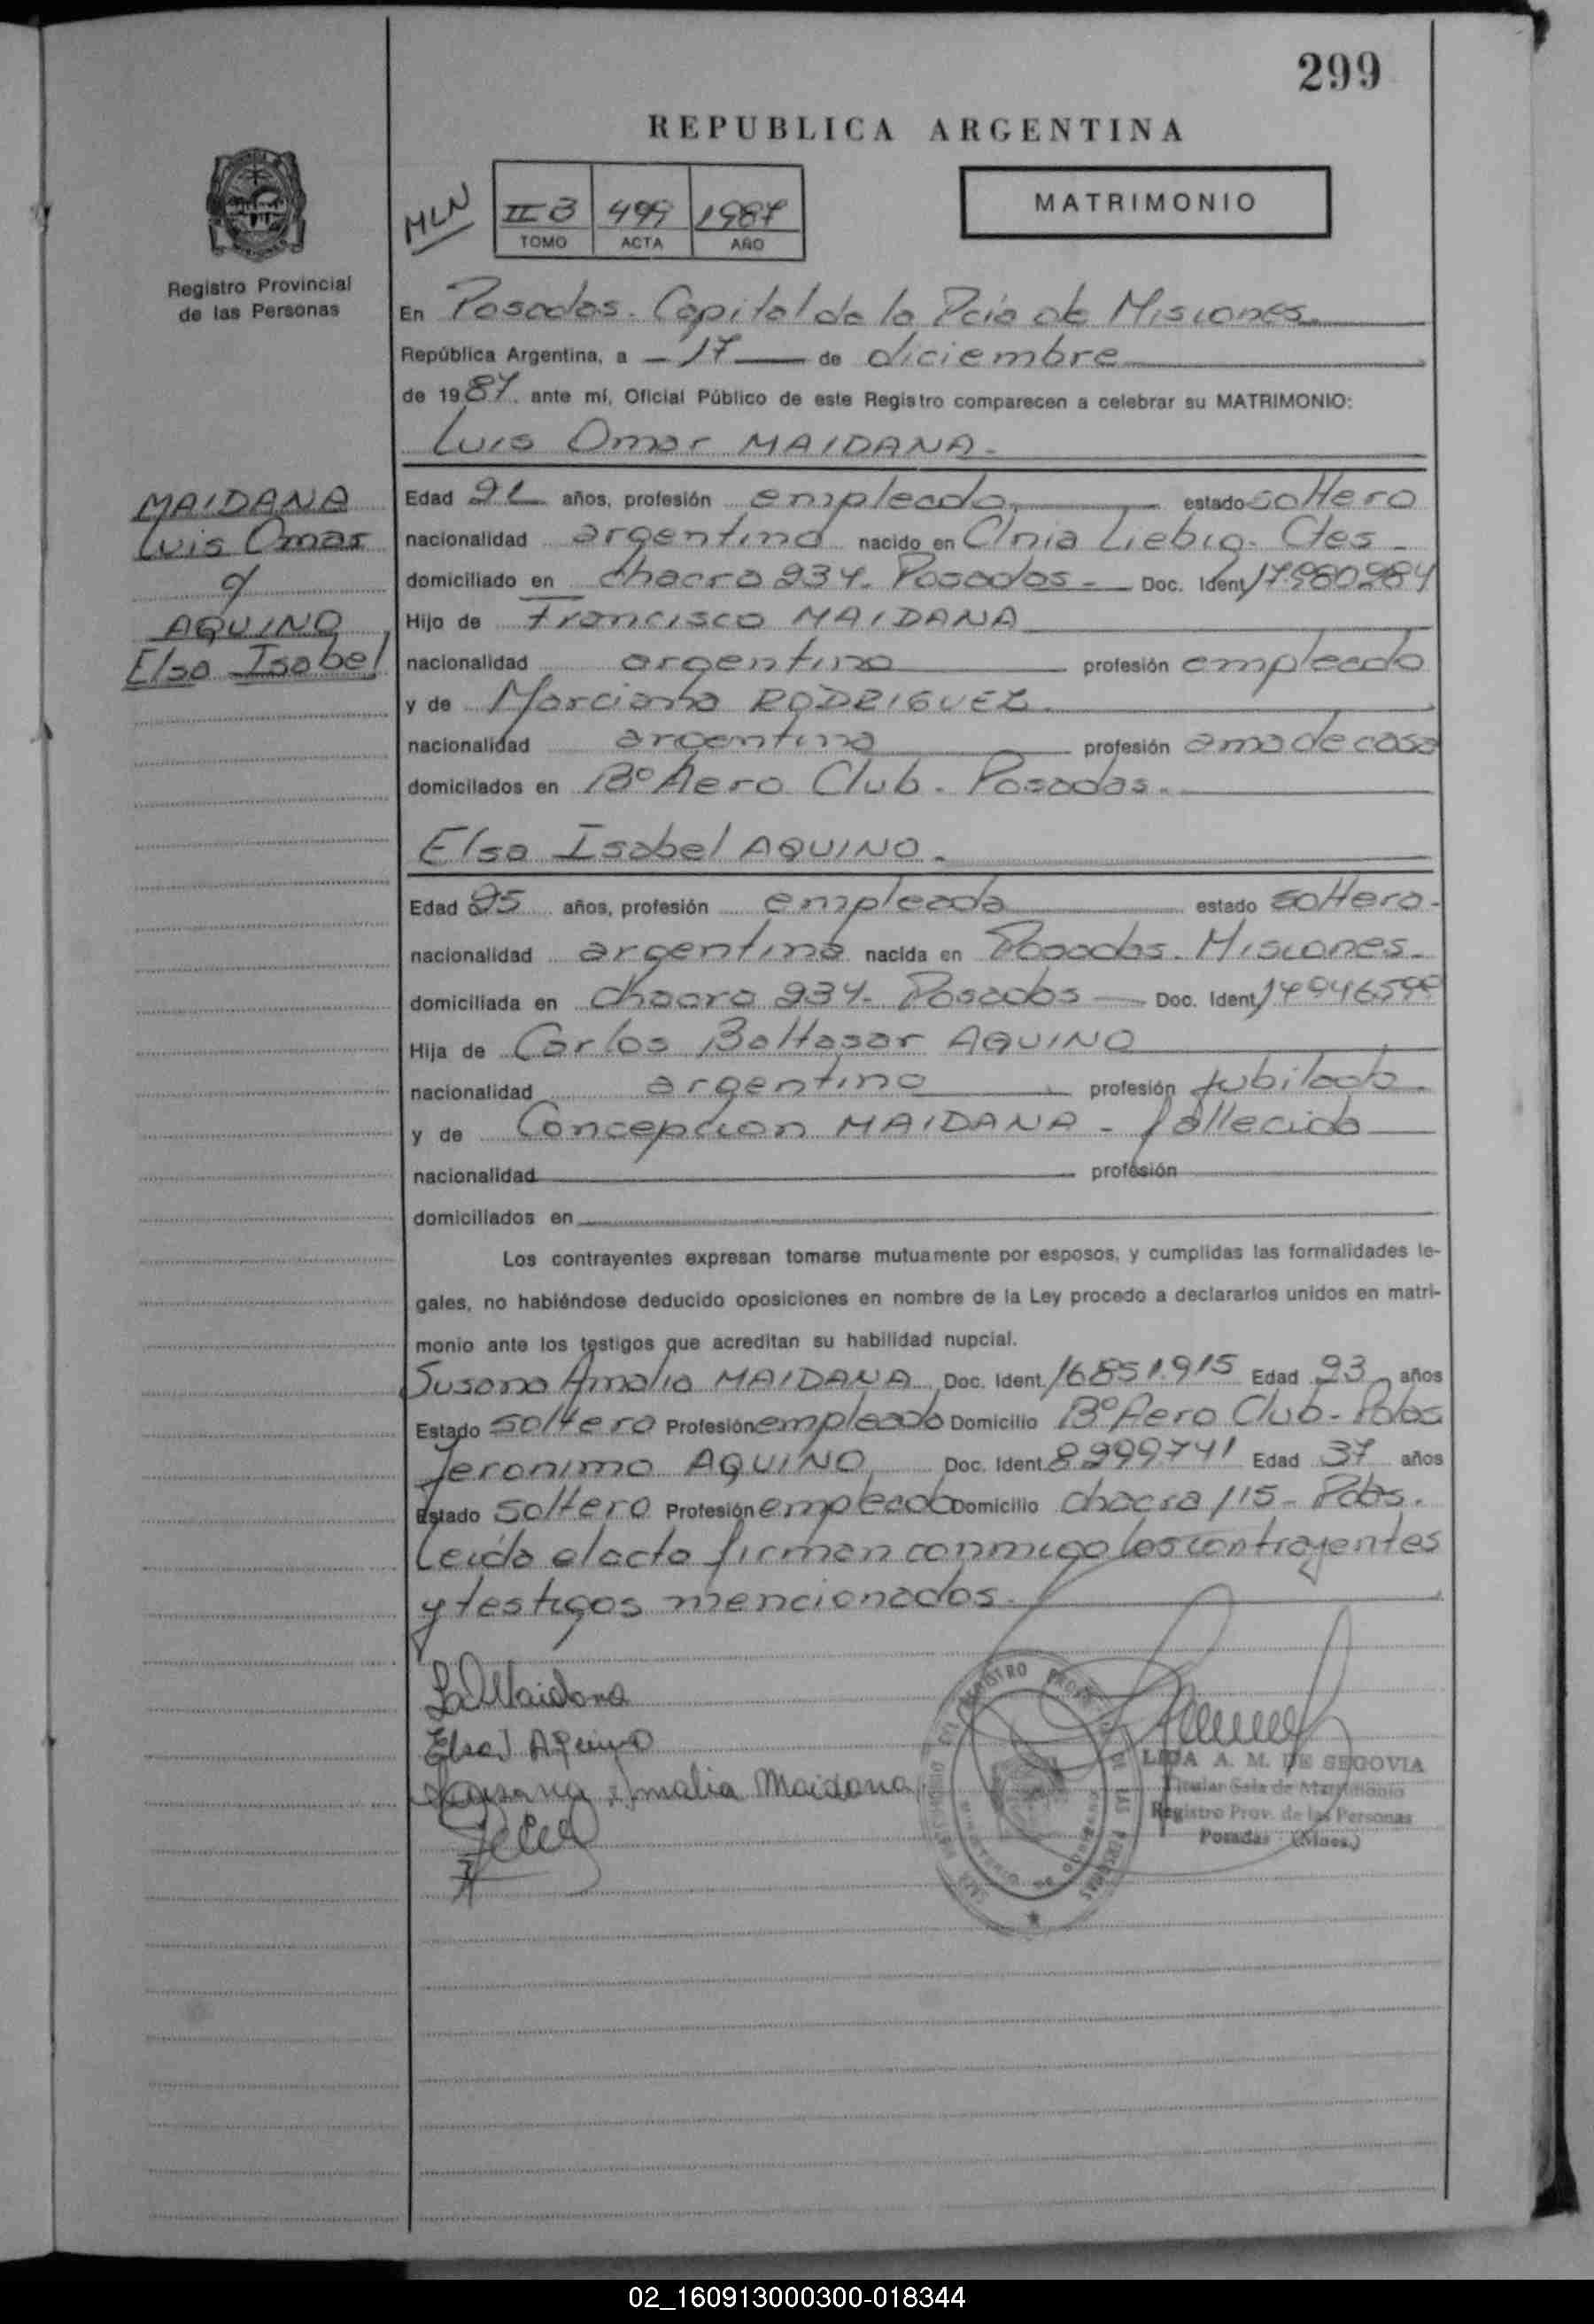 299
REPUBLICA ARGENTINA
MLN
II B 499 1987
TOMO ACTA AÑO
MATRIMONIO
Registro Provincial
de las Personas
En Posadas. Capital de la Pcia de Misiones.
República Argentina, a - 17 — de diciembre
de 1987. ante mí, Oficial Público de este Registro comparecen a celebrar su MATRIMONIO:
Luis Omar MAIDANA.
MAIDANA
Luis Omar
AQUINO
Elsa Isabel
Edad años, profesión empleado estado soltero
nacionalidad argentina nacido en Clnia Liebig. Ctes -
domiciliado en chacra 234. Posadas - Doc. Ident 17.980984
Hijo de Francisco MAIDANA
nacionalidad argentino profesión empleado
y de Marciana RODRIGUEZ.
nacionalidad argentina profesión ama de casa
domicilados en Bº Aero Club. Posadas.
Elsa Isabel AQUINO.
Edad 25 años, profesión empleada estado soltera-
nacionalidad argentina nacida en Posadas. Misiones.
domiciliada en chacra 234. Posadas — Doc. Ident
Hija de Carlos Baltasar AQUINO
nacionalidad argentino profesión jubilado.
y de Concepcion MAIDANA - fallecida
nacionalidad profesión
domiciliados en
Los contrayentes expresan tomarse mutuamente por esposos, y cumplidas las formalidades le-
gales, no habiéndose deducido oposiciones en nombre de la Ley procedo a declararlos unidos en matri-
monio ante los testigos que acreditan su habilidad nupcial.
Susana Amalia MAIDANA Doc. Ident. 16851.915 Edad 23 años
Estado soltera Profesión empleada Domicilio Bº Aero Club - Pdas
Jeronimo AQUINO Doc. Ident. 8299741 Edad 37 años
Estado soltero Profesión empleado Domicilio chacra 115 - Pdas.
Leida el acta firman conmigo los contrayentes
y testigos mencionados.
L.O.Maidana
Elsa I Aquino
Susana Amalia Maidana
LIDA A. M. DE SEGOVIA
Titular Sala de Matrimonio
Registro Prov. de las Personas
Posadas (Mnes.)
02_160913000300-018344